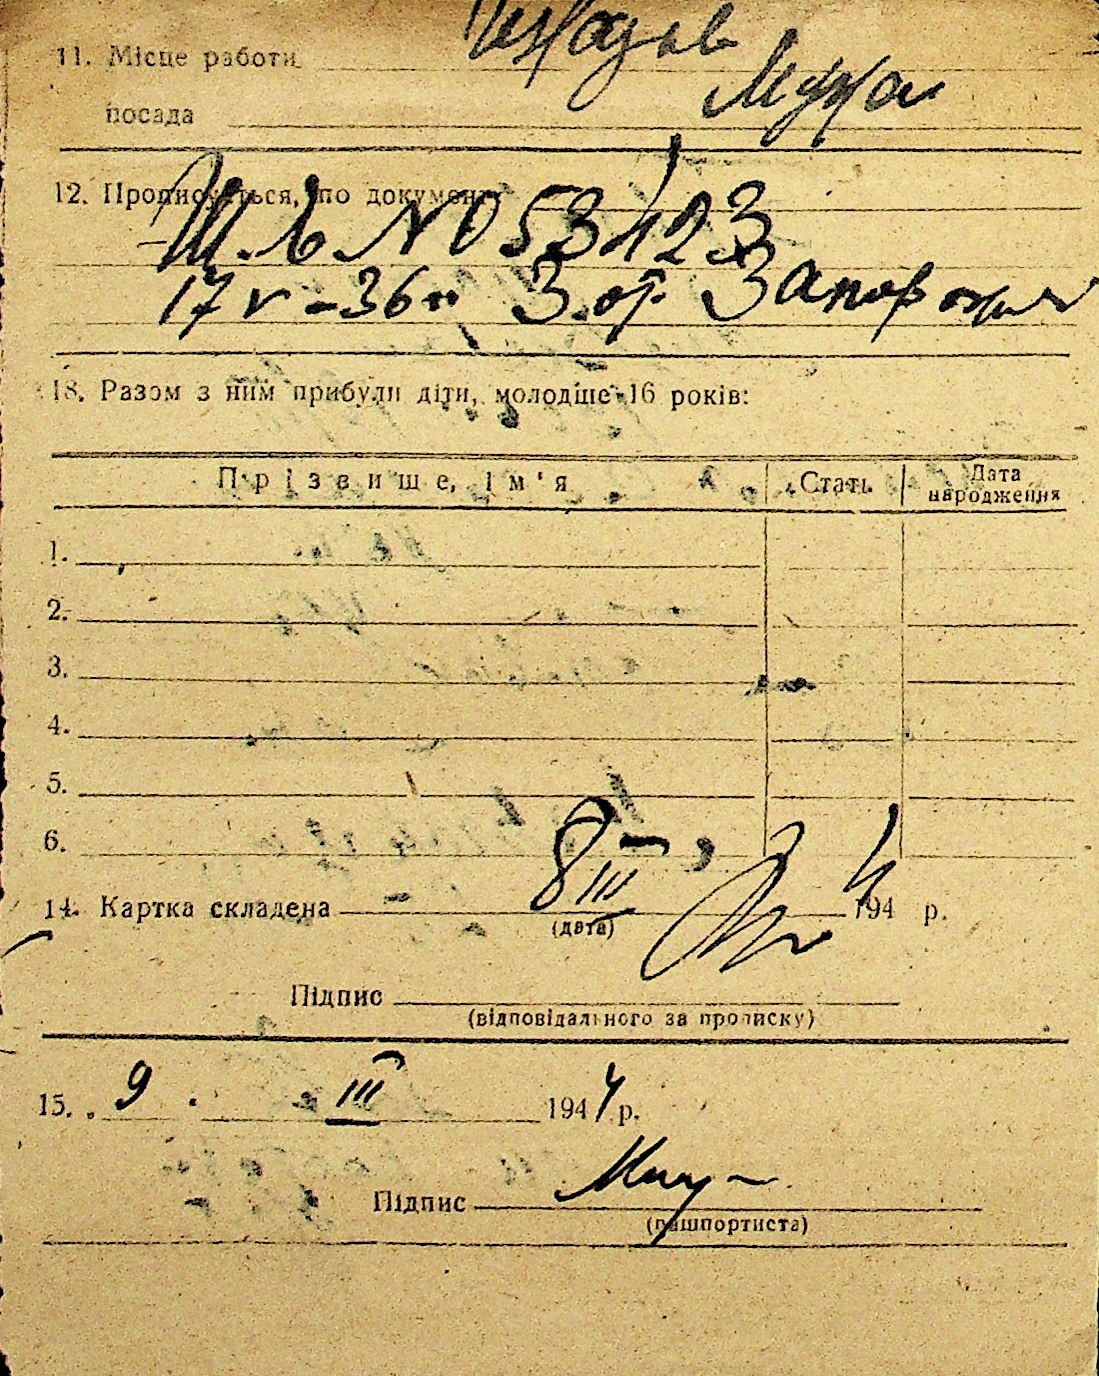 11. Місце работи
Мужа
посада
12. Прописується, по документу
Ш.Ь N 053423
17 V - 36 3. от. Запорожья
18. Разом з ним прибули діти, молодіше 16 років:
Прізвище, ім'я Стать Дата народження
1.
2.
3.
4.
5.
6.
14. Картка складена 8 III 1944 р.
(дата)
Підпис
(відповідального за прописку)
15. 9 . III 1944 р.
Підпис
(пашпортиста)